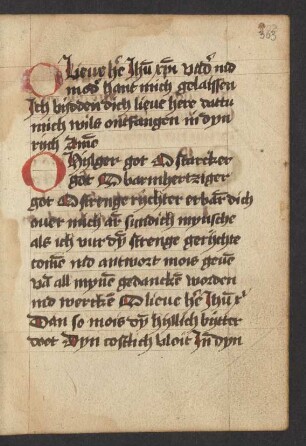 363
O Lieue h̄e Jhū xp̄i vad' nid
mod' hant mich gelaissen
Ich bisoden dich lieue here dattu
mich wils ontfangen in dyn
rych Amē
O Hylger got O starcker
got O barmhertziger
got O strenge rychter erbar dich
ouer mich ar̄ sundich mynsche
als ich vur dȳ strenge gerychte
comē nid antwort mois geue
vā all mynē gedancken worden
nid wercken O lieue h̄e Jhū x̄
Dan so mois dȳ hyllich bytter
doet Dyn costlich bloit In dyn